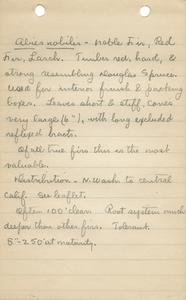 Abies nobilis - Noble Fir, Red
Fir, Larch. Timber red, hard, &
strong, resembling Douglas Spruce.
Used for interior finish & packing
boxes. Leaves short & stiff, cones
very large (6"), with long excluded
reflexed bracts.
Of all true firs this is the most
valuable.
Distribution - N. Wash. to central
Calif. See leaflet.
Often 100' clear. Root system much
deeper than other firs. Tolerant.
8"-250' at maturity.